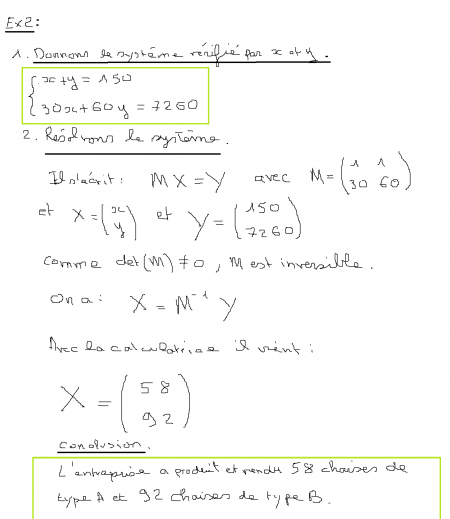 Ex2:
1. Donnons le système vérifié par x et y.
x+y = 150
30x+60y = 7260
2. Résolvons le système.
Il s'écrit : MX = Y avec M = (1 1
30 60)
et X = (x
y) et Y = (150
7260)
comme det(M) ≠ 0, M est inversible.
On a : X = M⁻¹ Y
Avec la calculatrice il vient :
X = (58
92)
conclusion.
L'entreprise a produit et vendu 58 chaises de
type A et 92 chaises de type B.